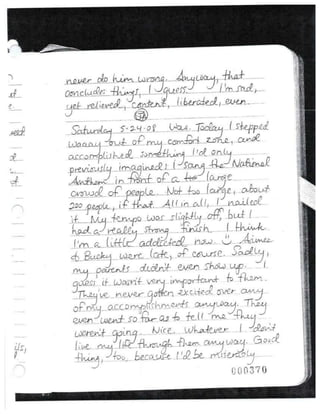 never do him wrong. Anyway, that
concludes things, I guess. I'm sad,
yet relieved, content, liberated, even.
Saturday 5-24-08 Wow. Today I stepped
waaay out of my comfort zone, and
accomplished something I'd only
previously imagined: I sang the National
Anthem in front of a large
crowd of people. Not too large, about
200 people, if that. All in all, I nailed
it. My tempo was slightly off, but I
had a really strong finish. I think
I'm a little addicted now. ☺ Aimee
& Bucky were late, of course. Sadly,
my parents didn't even show up. I
guess it wasn't very important to them.
They've never gotten excited over any
of my accomplishments anyway. They
even went so far as to tell me they
weren't going. Nice. Whatever. I don't
live my life through them anyway. Good
thing, too, because I'd be miserably
000370